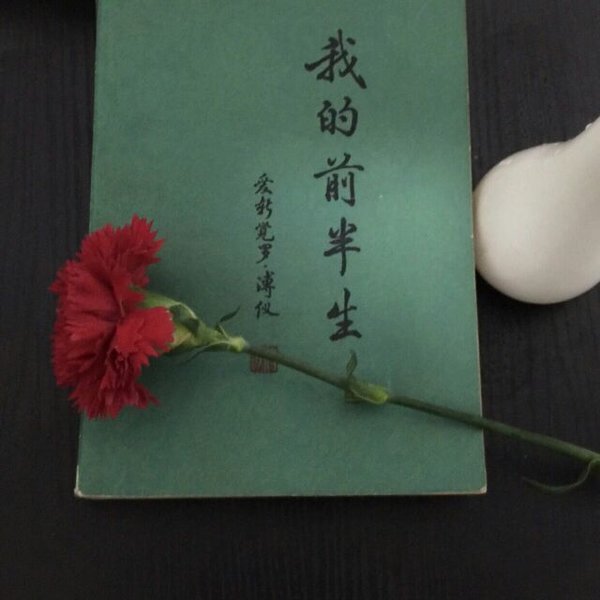 我的前半生
爱新觉罗·溥仪